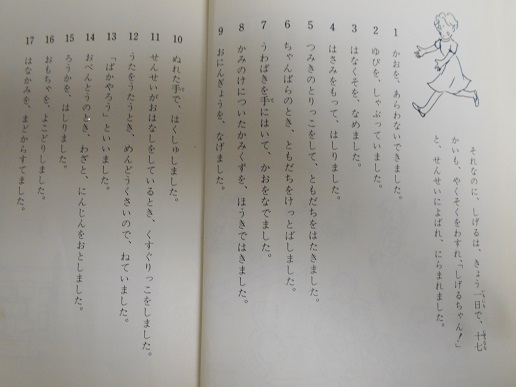 それなのに、しげるは、きょう一日で、十七
かいも、やくそくをわすれ、「しげるちゃん!」
と、せんせいによばれ、にらまれました。
1 かおを、あらわないできました。
2 ゆびを、しゃぶっていました。
3 はなくそを、なめました。
4 はさみをもって、はしりました。
5 つみきのとりっこをして、ともだちをはたきました。
6 ちゃんばらのとき、ともだちをけっとばしました。
7 うわばきを手にはいて、かおをなでました。
8 かみのけについたかみくずを、ほうきではきました。
9 おにんぎょうを、なげました。
10 ぬれた手で、はくしゅしました。
11 せんせいがおはなしをしているとき、くすぐりっこをしました。
12 うたをうたうとき、めんどうくさいので、ねていました。
13 「ばかやろう」といいました。
14 おべんとうのとき、わざと、にんじんをおとしました。
15 ろうかを、はしりました。
16 おもちゃを、よこどりしました。
17 はなかみを、まどからすてました。